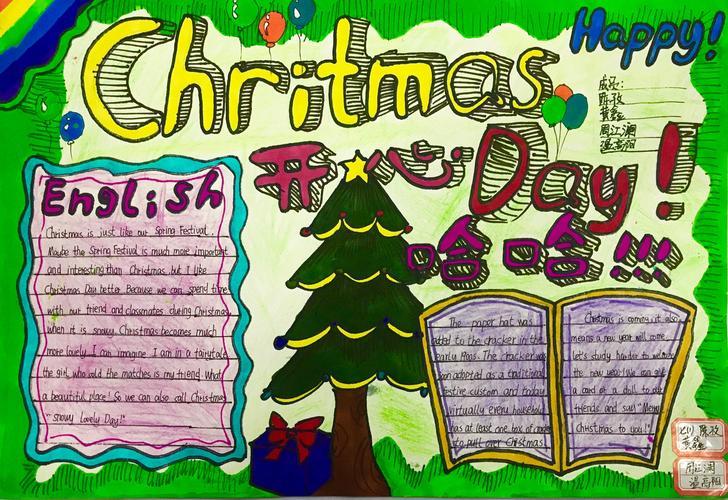 Happy!
Chritmas
成员:
陈孜
黄鑫
周江澜
温高阳
开心 Day!
哈哈!!!
English
Christmas is just like our Spring Festival.
Maybe the Spring Festival is much more important
and interesting than Christmas, but I like
Christmas Day better. Because we can spend time
with our friend and classmates during Christmas
when it is snowy. Christmas becomes much
more lovely. I can imagine I am in a fairytale
the girl who sold the matches is my friend. What
a beautiful place! So we can also call Christmas
"snowy Lovely Day!"
The paper hat was
added to the cracker in the
early 1900s. The cracker was
soon adopted as a traditional
festive custom and today
virtually every household
has at least one box of
to pull over Christmas.
Christmas is coming, it also
means a new year will come,
let's study harder to welcome
the new year! We can give
a card or a doll to our
friends and said "Merry
Christmas to you!"
陈孜
黄鑫
周江澜
温高阳